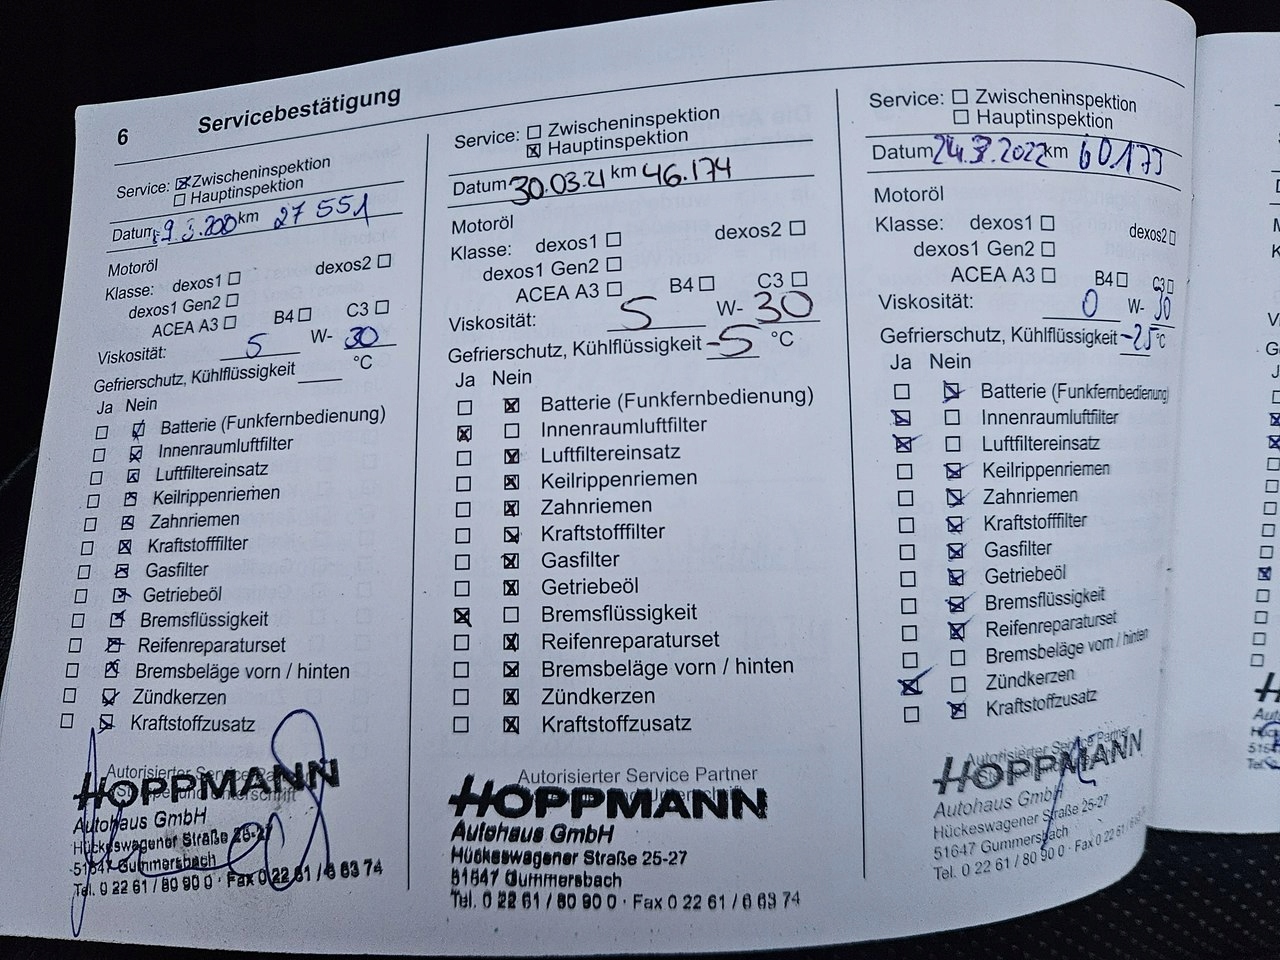 6 Servicebestätigung
Service: Zwischeninspektion
Hauptinspektion
Datum km 27 551
Motoröl
Klasse: dexos1 dexos2
dexos1 Gen2
ACEA A3 B4 C3
Viskosität: 5 W- 30
Gefrierschutz, Kühlflüssigkeit °C
Ja Nein
Batterie (Funkfernbedienung)
Innenraumluftfilter
Luftfiltereinsatz
Keilrippenriemen
Zahnriemen
Kraftstofffilter
Gasfilter
Getriebeöl
Bremsflüssigkeit
Reifenreparaturset
Bremsbeläge vorn / hinten
Zündkerzen
Kraftstoffzusatz
Autorisierter Service
HOPPMANN
Autohaus GmbH
Hückeswagener Straße 25-27
51647 Gummersbach
Tel. 0 22 61 / 80 90 0 · Fax 0 22 61 / 6 63 74
Service: Zwischeninspektion
Hauptinspektion
Datum 30.03.21 km 46.174
Motoröl
Klasse: dexos1 dexos2
dexos1 Gen2
ACEA A3 B4 C3
Viskosität: 5 W- 30
Gefrierschutz, Kühlflüssigkeit -5 °C
Ja Nein
Batterie (Funkfernbedienung)
Innenraumluftfilter
Luftfiltereinsatz
Keilrippenriemen
Zahnriemen
Kraftstofffilter
Gasfilter
Getriebeöl
Bremsflüssigkeit
Reifenreparaturset
Bremsbeläge vorn / hinten
Zündkerzen
Kraftstoffzusatz
Autorisierter Service Partner
HOPPMANN
Autohaus GmbH
Hückeswagener Straße 25-27
51647 Gummersbach
Tel. 0 22 61 / 80 90 0 · Fax 0 22 61 / 6 63 74
Service: Zwischeninspektion
Hauptinspektion
Datum 24.3.2022 km 60.173
Motoröl
Klasse: dexos1 dexos2
dexos1 Gen2
ACEA A3 B4 C3
Viskosität: 0 W- 30
Gefrierschutz, Kühlflüssigkeit -25 °C
Ja Nein
Batterie (Funkfernbedienung)
Innenraumluftfilter
Luftfiltereinsatz
Keilrippenriemen
Zahnriemen
Kraftstofffilter
Gasfilter
Getriebeöl
Bremsflüssigkeit
Reifenreparaturset
Bremsbeläge vorn / hinten
Zündkerzen
Kraftstoffzusatz
Autorisierter Service Partner
HOPPMANN
Autohaus GmbH
Hückeswagener Straße 25-27
51647 Gummersbach
Tel. 0 22 61 / 80 90 0 · Fax 0 22 61